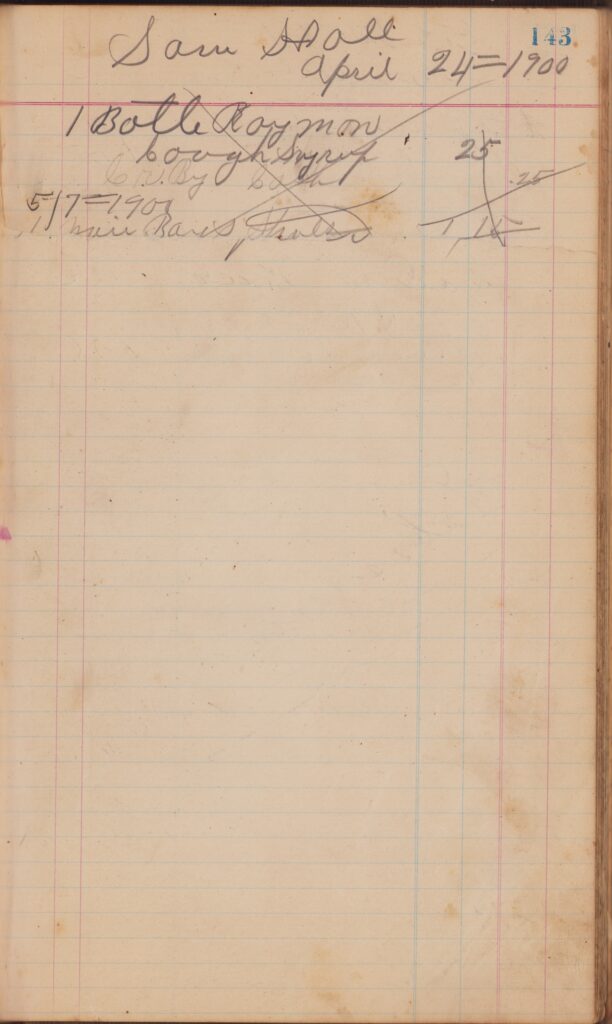 143
Sam Hall
April 24=1900
1 Botle Raymon
Cough Syrup . 25
Cr. By Cash .25
5/7=1900
1 Pair 1,15